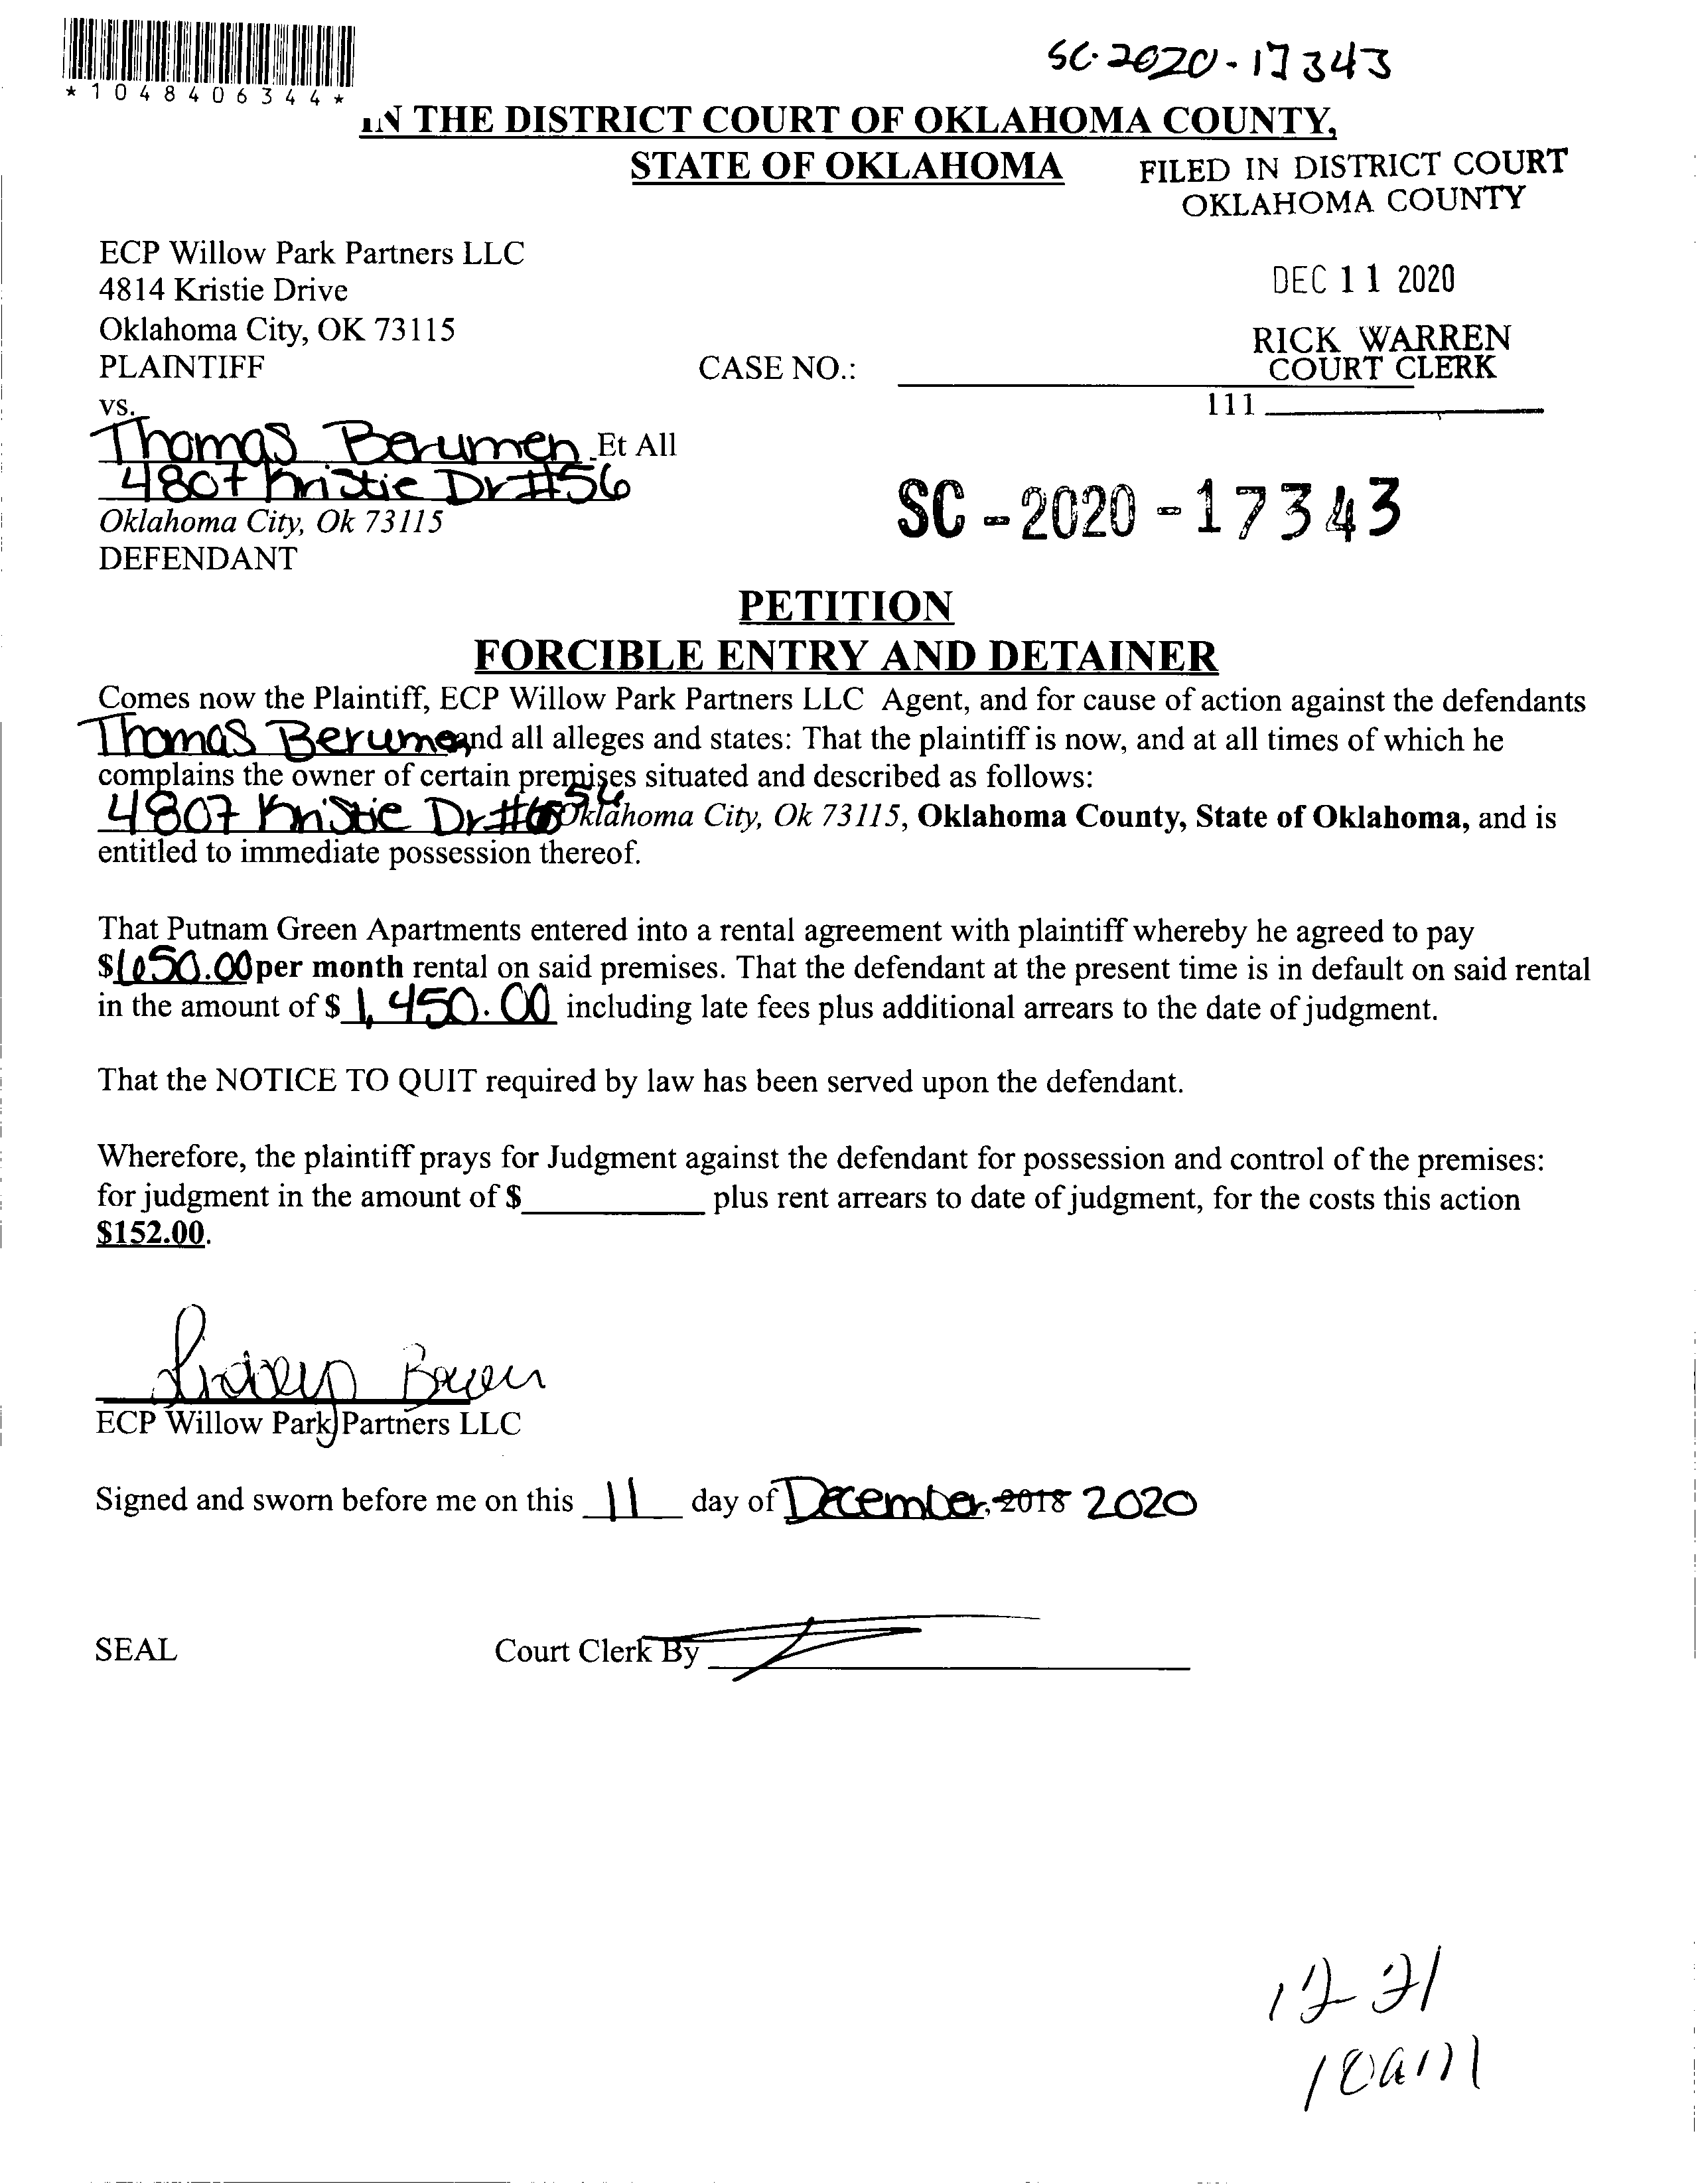 SC-2020-17343
*1048406344*
IN THE DISTRICT COURT OF OKLAHOMA COUNTY,
STATE OF OKLAHOMA
FILED IN DISTRICT COURT
OKLAHOMA COUNTY
ECP Willow Park Partners LLC
4814 Kristie Drive
DEC 11 2020
Oklahoma City, OK 73115
RICK WARREN
PLAINTIFF
CASE NO.:
COURT CLERK
vs.
111
Thomas Berumen Et All
4807 Kristie Dr #56
Oklahoma City, Ok 73115
SC-2020-17343
DEFENDANT
PETITION
FORCIBLE ENTRY AND DETAINER
Comes now the Plaintiff, ECP Willow Park Partners LLC Agent, and for cause of action against the defendants
Thomas Berumen and all alleges and states: That the plaintiff is now, and at all times of which he
complains the owner of certain premises situated and described as follows:
4807 Kristie Dr # 56 Oklahoma City, Ok 73115, Oklahoma County, State of Oklahoma, and is
entitled to immediate possession thereof.
That Putnam Green Apartments entered into a rental agreement with plaintiff whereby he agreed to pay
$650.00 per month rental on said premises. That the defendant at the present time is in default on said rental
in the amount of $ 1,450.00 including late fees plus additional arrears to the date of judgment.
That the NOTICE TO QUIT required by law has been served upon the defendant.
Wherefore, the plaintiff prays for Judgment against the defendant for possession and control of the premises:
for judgment in the amount of $ plus rent arrears to date of judgment, for the costs this action
$152.00.
ECP Willow Park Partners LLC
Signed and sworn before me on this 11 day of December, 2018 2020
SEAL
Court Clerk By
12-21
10am